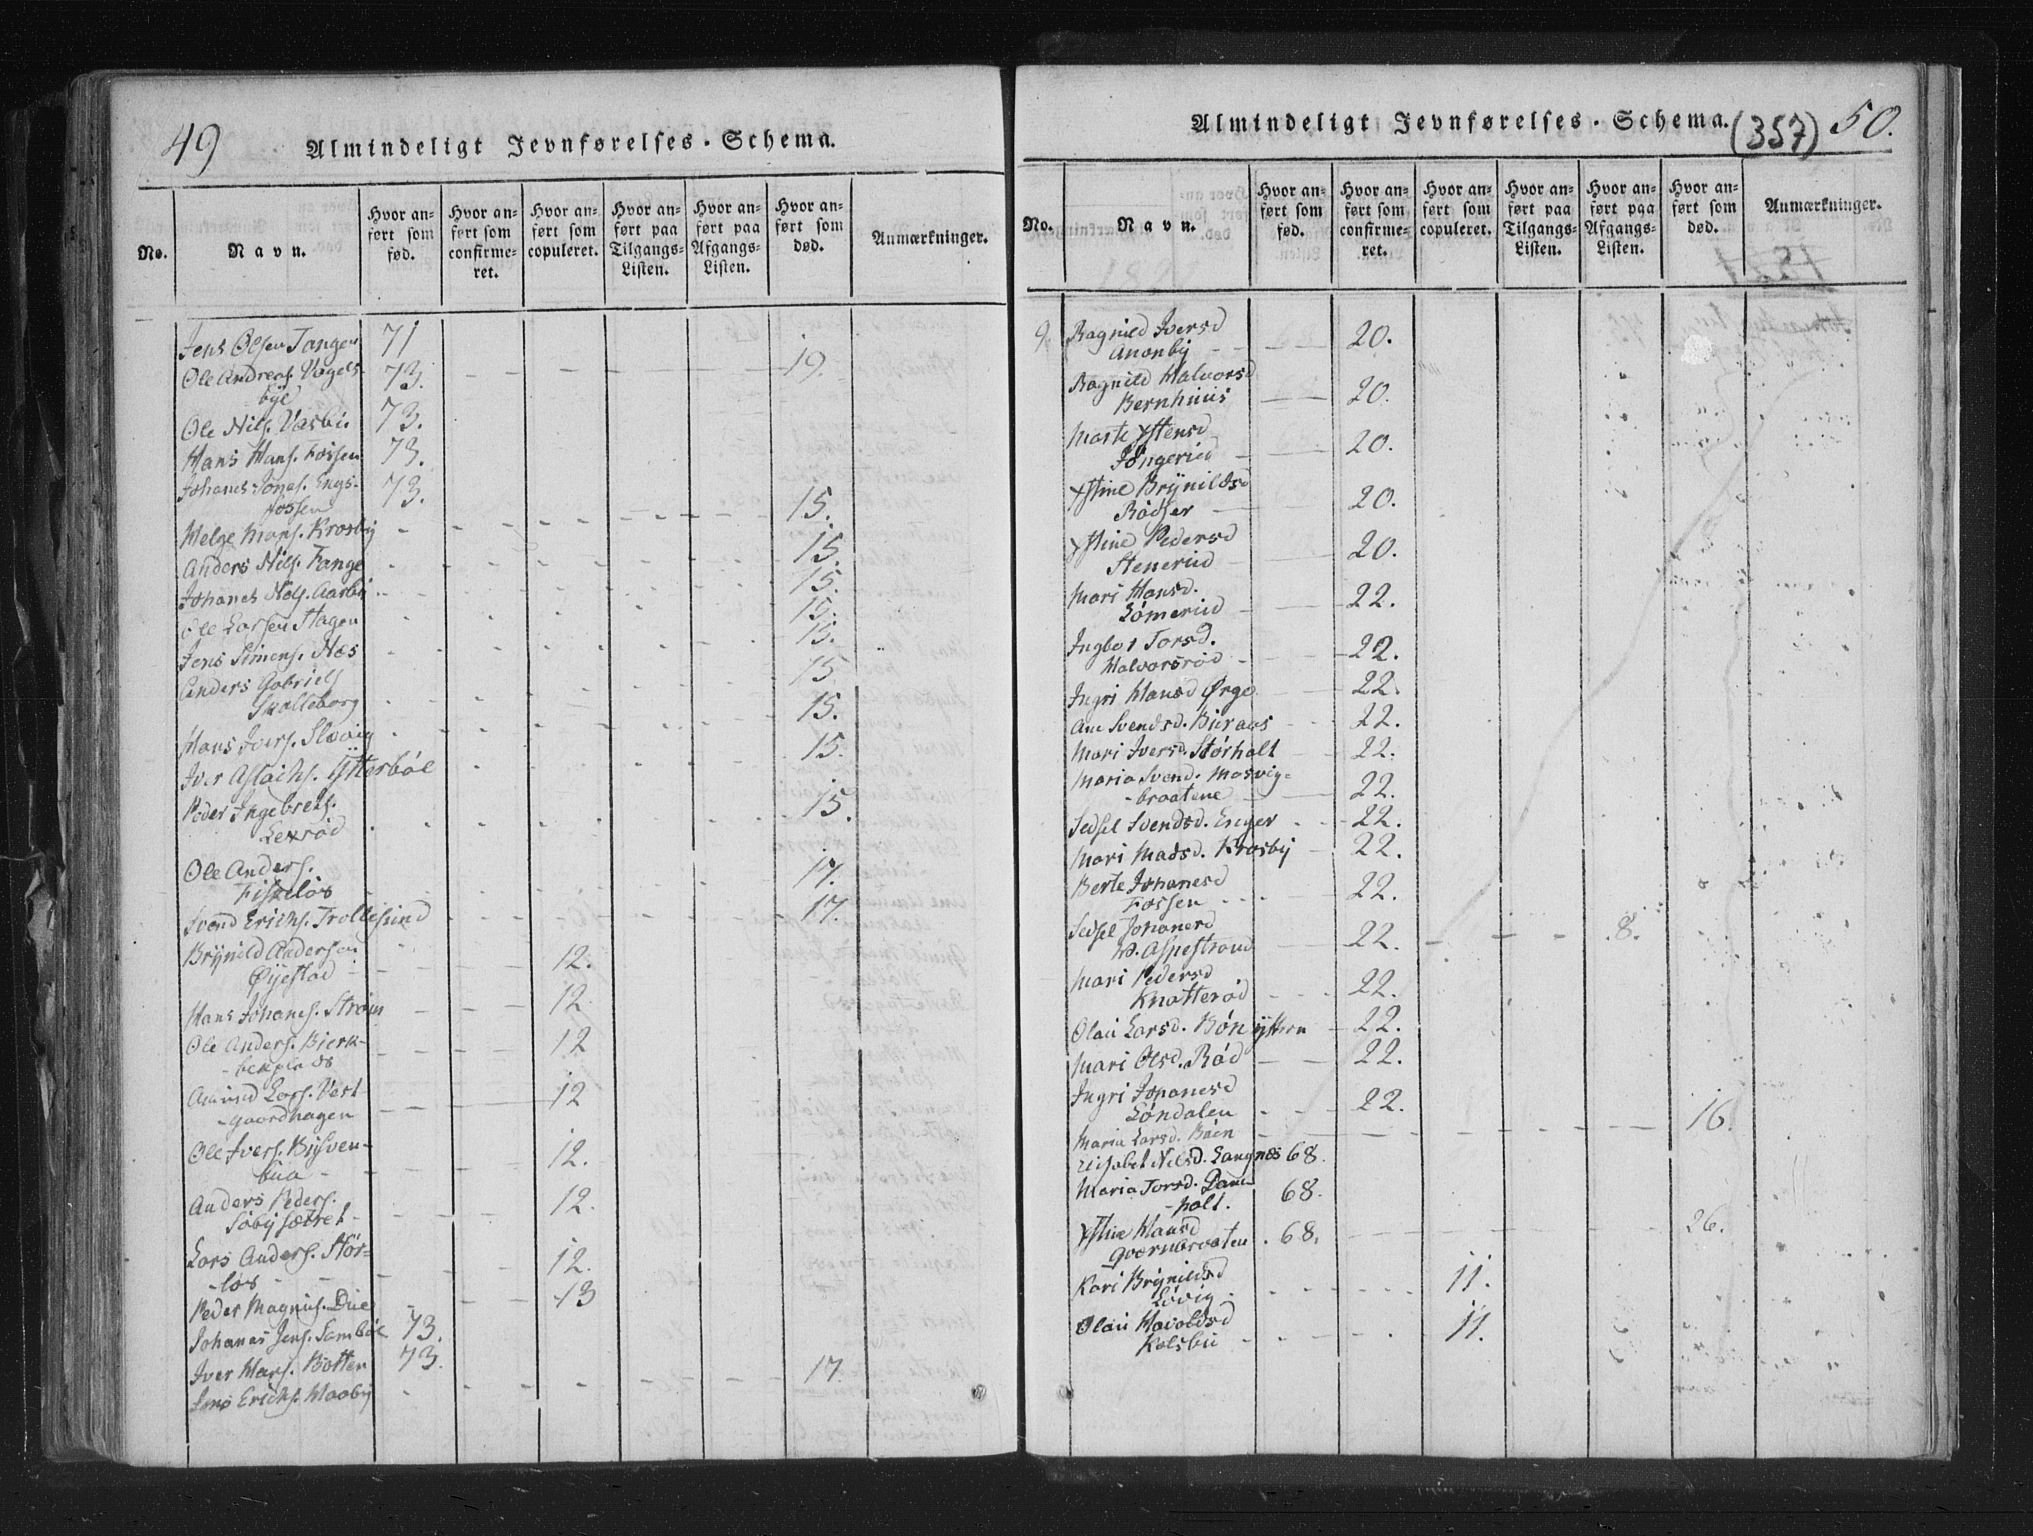 49
Almindeligt Jevnførelses-Schema.
No.
Navn.
Hvor anført som fød.
Hvor anført som confirmeret.
Hvor anført som copuleret.
Hvor anført paa Tilgangs-Listen.
Hvor anført paa Afgangs-Listen.
Hvor anført som død.
Anmærkninger.
Jens Olsen Tangen 71
Ole Andreas. Vogels- 73. 19.
bye
Ole Nils. Vasbu. 73.
Hans Hans. Fossen 73.
Johanes Jonas. Engs- 73.
fossen
Helge Mons. Krosby 15.
Anders Nils. Tange 15.
Johanes Nels. Aarby 15.
Ole Larsen Hagen 15.
Jens Simens. Næs 15.
Anders Gabriels 15.
Skalleborg
Hans Ivers. Slavig 15.
Iver Aslachs. Ytterbøl 15.
Peder Ingebrets. 15.
Lexrød
Ole Anders. 17.
Fiskeløs
Svend Erichs. Trollesund 17.
Brynild Andersen
Øyestad 12.
Hans Johanes. Strøm 12.
Ole Anders. Bierk- 12
Amund Lars. Vest-
-gaardhagen 12
Ole Ivers. Bysven-
bua 12.
Anders Peders.
Søbysætret 12.
Lars Anders. Stør-
-løs 12.
Peder Magnus. Due 13
Johanes Jens. Sambøl 73.
Iver Hans. Botten 73.
Jens Erichs. Haaby 17.
Almindeligt Jevnførelses-Schema. (357) 50.
No.
Navn.
Hvor anført som fød.
Hvor anført som confirmeret.
Hvor anført som copuleret.
Hvor anført paa Tilgangs-Listen.
Hvor anført paa Afgangs-Listen.
Hvor anført som død.
Anmærkninger.
9. Ragnild Iversd
Ananby 20.
Ragnild Halvorsd
Bernhuus 20.
Marte Ystensd
Jøngerud 20.
Ystine Brynildsd
Rødser 20.
Ystine Pedersd
Stenerud 20.
Mari Hansd.
Lømerud 22.
Ingbor Torsd.
Halvorsrød 22.
Ingri Hansd Ørge 22.
Ane Svendsd. Buraas 22.
Mari Iversd. Størholt 22.
Maria Svend. Mosvig-
-braatene 22.
Sedsel Svendsd. Enger 22.
Mari Madsd. Krosby 22.
Berte Johanesd
Fossen 22.
Sedsel Johanesd
N. Aspestrand 22. 8.
Mari Pedersd
Knatterød 22.
Olau Larsd. Bøn ysthen 22.
Mari Olsd. Rød 22.
Ingri Johanesd
Løndalen 22.
Maria Larsd. Bøen 16.
Elisabet Nelsd. Langnes 68.
Maria Torsd. Dam-
-holt. 68.
Ystine Hansd 26.
Qvernbraaten 68.
Kari Brynildsd 11.
Løvig
Olau Havoldsd 11.
Kolsbu